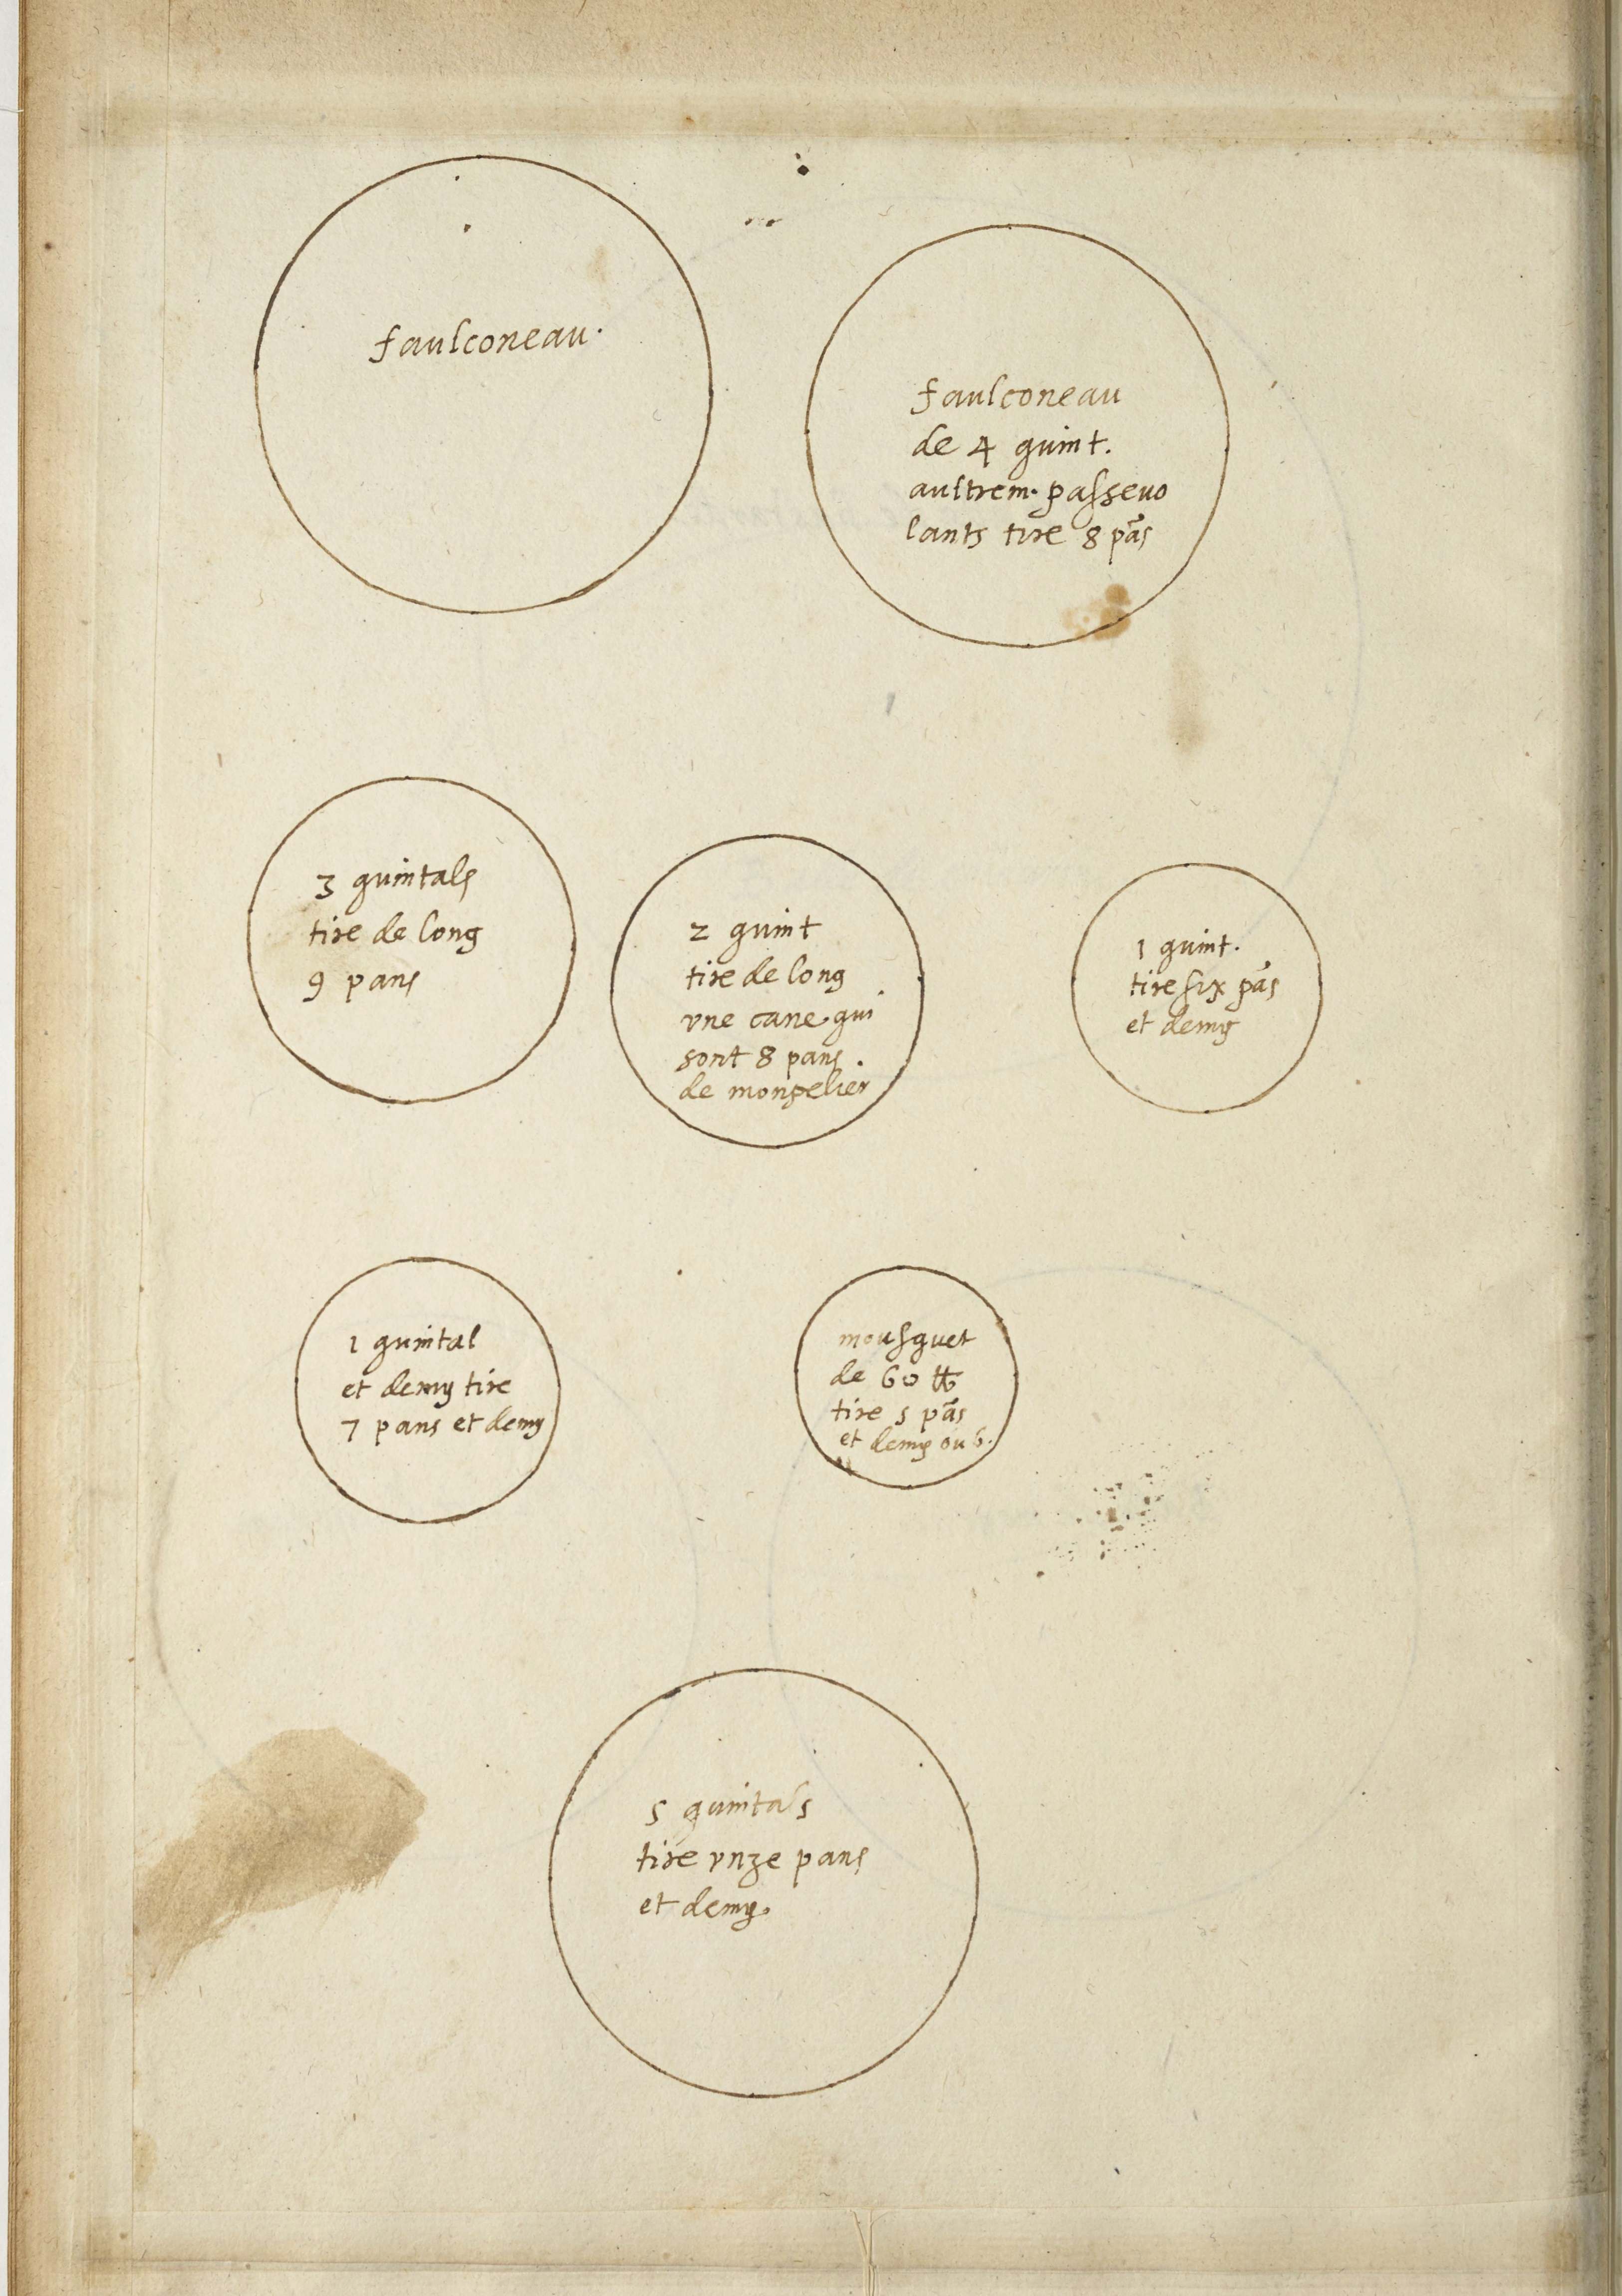 faulconeau.
faulconeau
de 4 quint.
aultrem. passevo
lants tire 8 pãs
3 quintals
tire de long
9 pans
2 quint
tire de long
vne cane qui
sont 8 pans.
de monpelier
1 quint.
tire six pãs
et demy
1 quintal
et demy tire
7 pans et demy
mousquet
de 60 ℔
tire 5 pãs
et demy ou 6.
5 quintals
tire vnze pans
et demy.